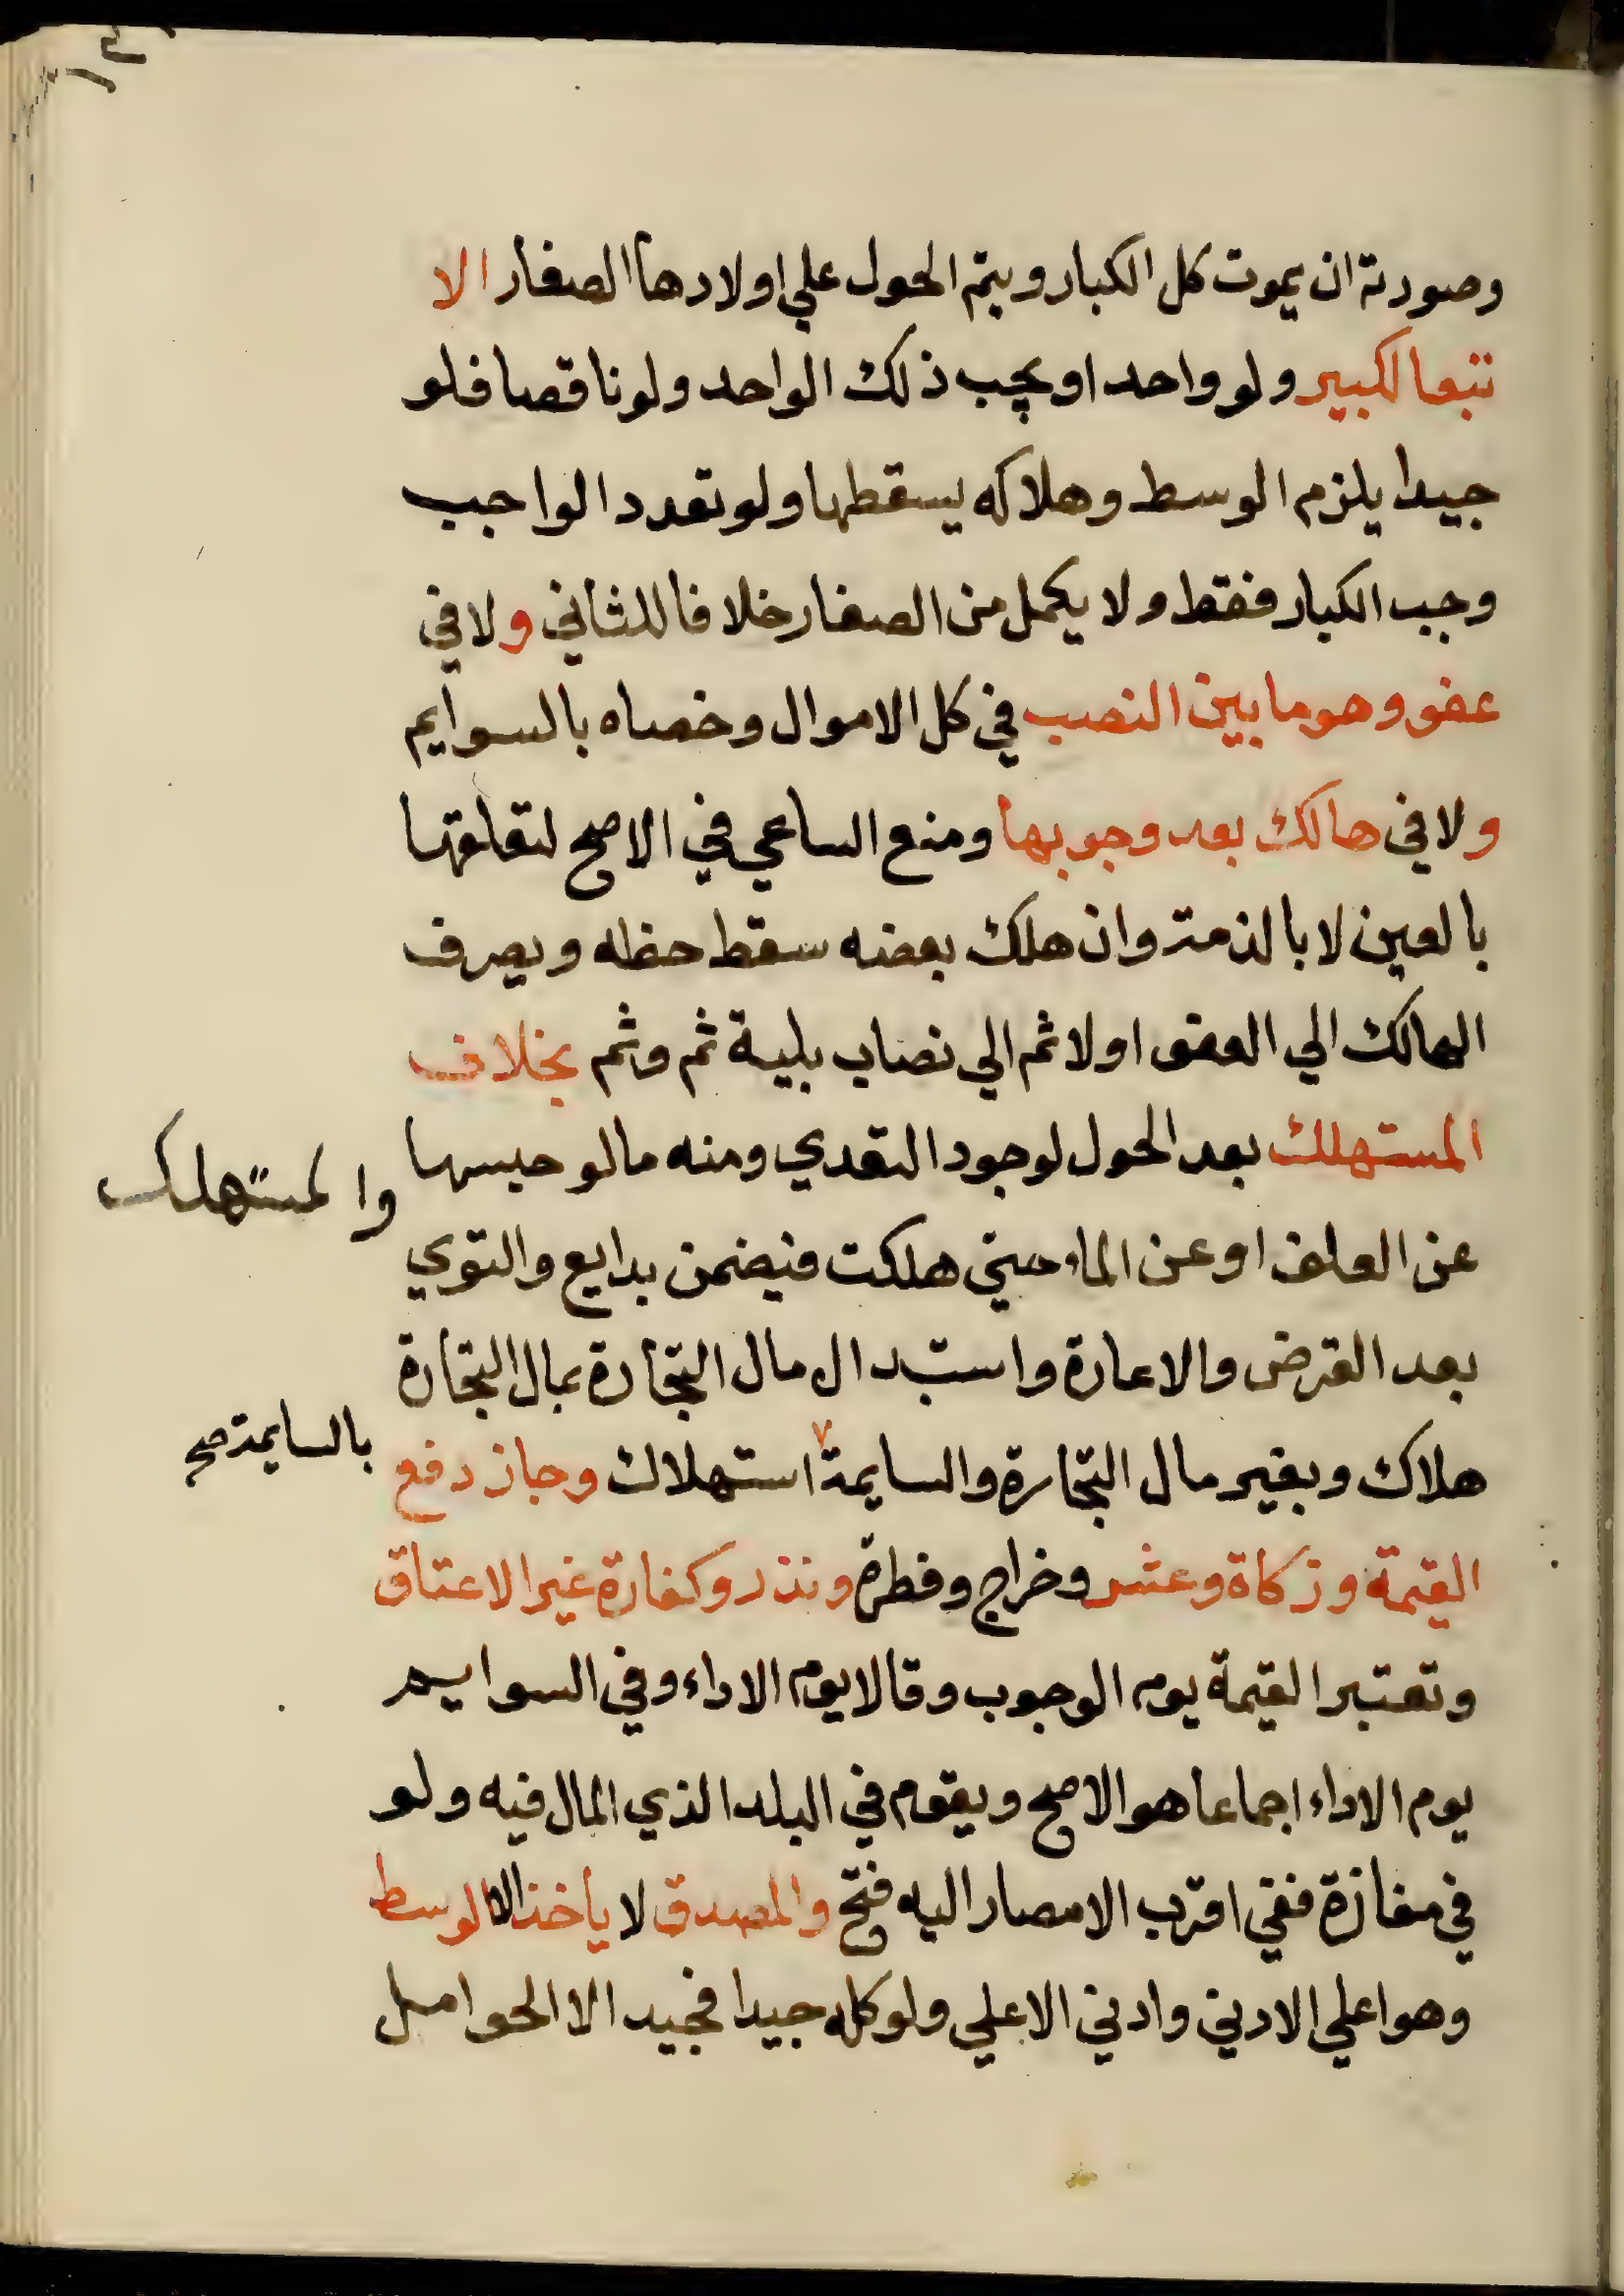 وصورته ان يموت كل الكبار ويتم الحول علي اولادها الصغار الا
تبعا لكبير ولو واحدا ويجب ذلك الواحد ولو ناقصا فلو
جيدا يلزم الوسط وهلاكه يسقطها ولو تعدد الواجب
وجب الكبار فقط ولا يكمل من الصغار خلافا للثاني ولا في
عفو وهو ما بين النصب في كل الاموال وخصاه بالسوايم
ولا في هالك بعد وجوبها ومنع الساعي في الاصح لتعلقها
بالعين لا بالذمة وان هلك بعضه سقط حظه ويصرف
الهالك الي العفو اولا ثم الي نصاب يليه ثم وثم بخلاف
المستهلك بعد الحول لوجود التعدي ومنه ما لو حبسها
والمستهلك
عن العلف او عن الماء حتي هلكت فيضمن بدايع والتوي
بعد القرض والاعارة واستبدال مال التجارة بمال التجارة
هلاك وبغير مال التجارة والسايمة استهلاك وجاز دفع
بالسايمة صح
القيمة وزكاة وعشر وخراج وفطرة ونذر وكفارة غير الاعتاق
وتعتبر القيمة يوم الوجوب وقالا يوم الاداء وفي السوايم
يوم الاداء اجماعا هو الاصح ويقوم في البلد الذي المال فيه ولو
في مفازة ففي اقرب الامصار اليه فتح والمصدق لا ياخذ الا الوسط
وهو اعلي الادني وادني الاعلي ولو كله جيدا فجيد الا الحوامل